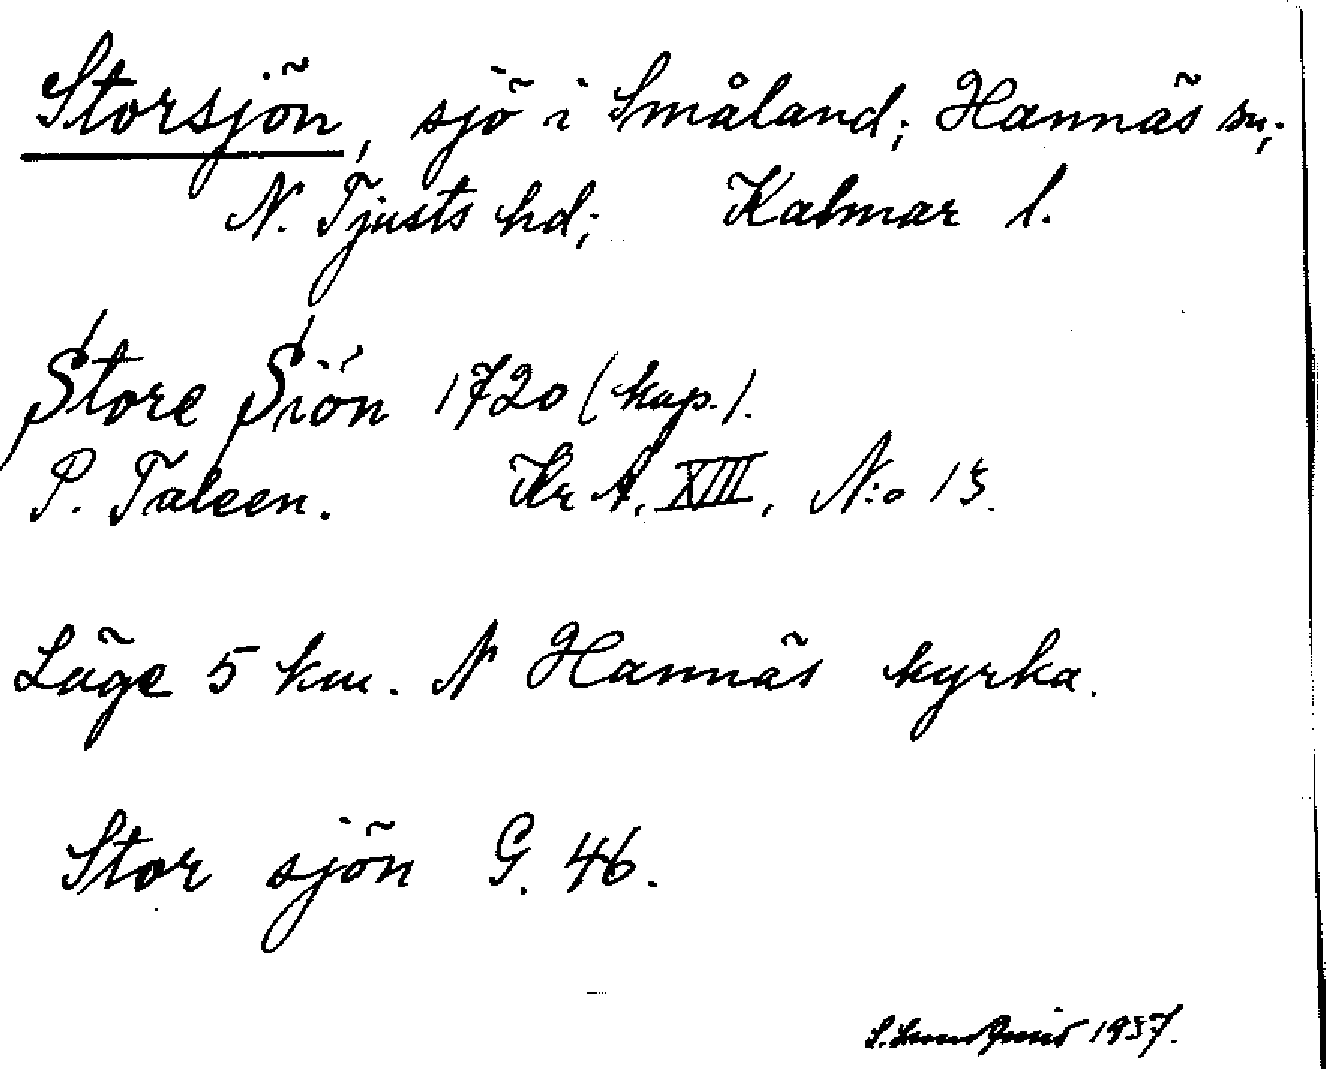 Storsjön, sjö i Småland; Hannäs sn;
N. Tjusts hd; Kalmar l.
Store Siön 1720 (kap.).
P. Taleen. Kr A. XIII, N:o 13.
Läge 5 km. N Hannäs kyrka.
Stor sjön G. 46.
S. Lundqvist 1937.